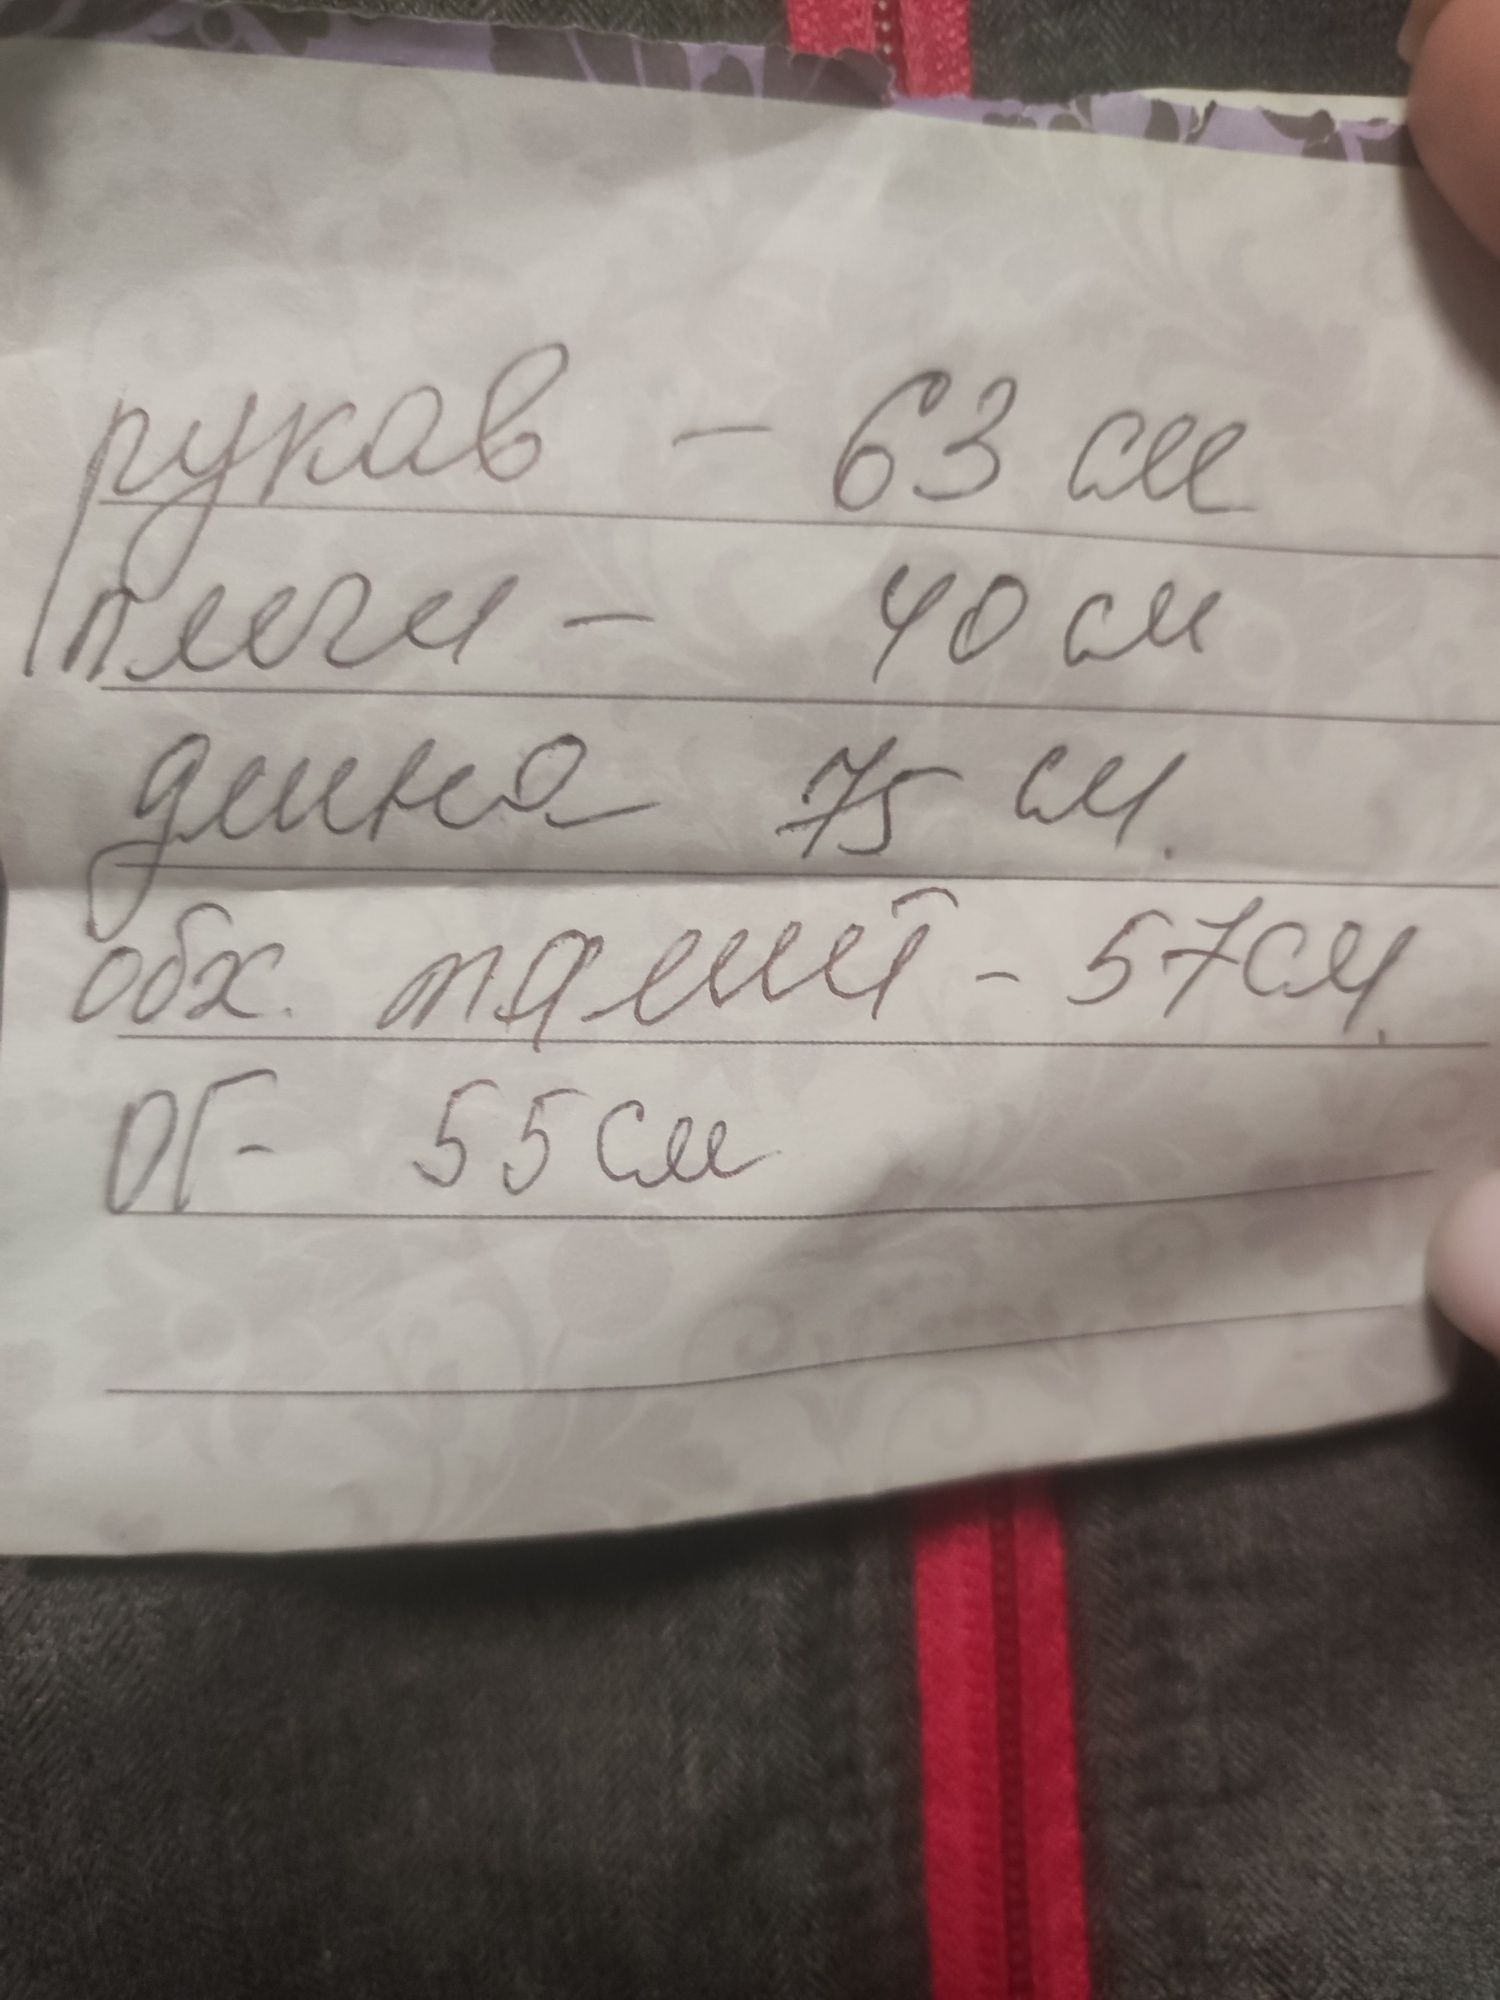 рукав - 63 см
плечи - 40 см
длина 75 см.
обх. талий - 57см.
ОГ - 55см